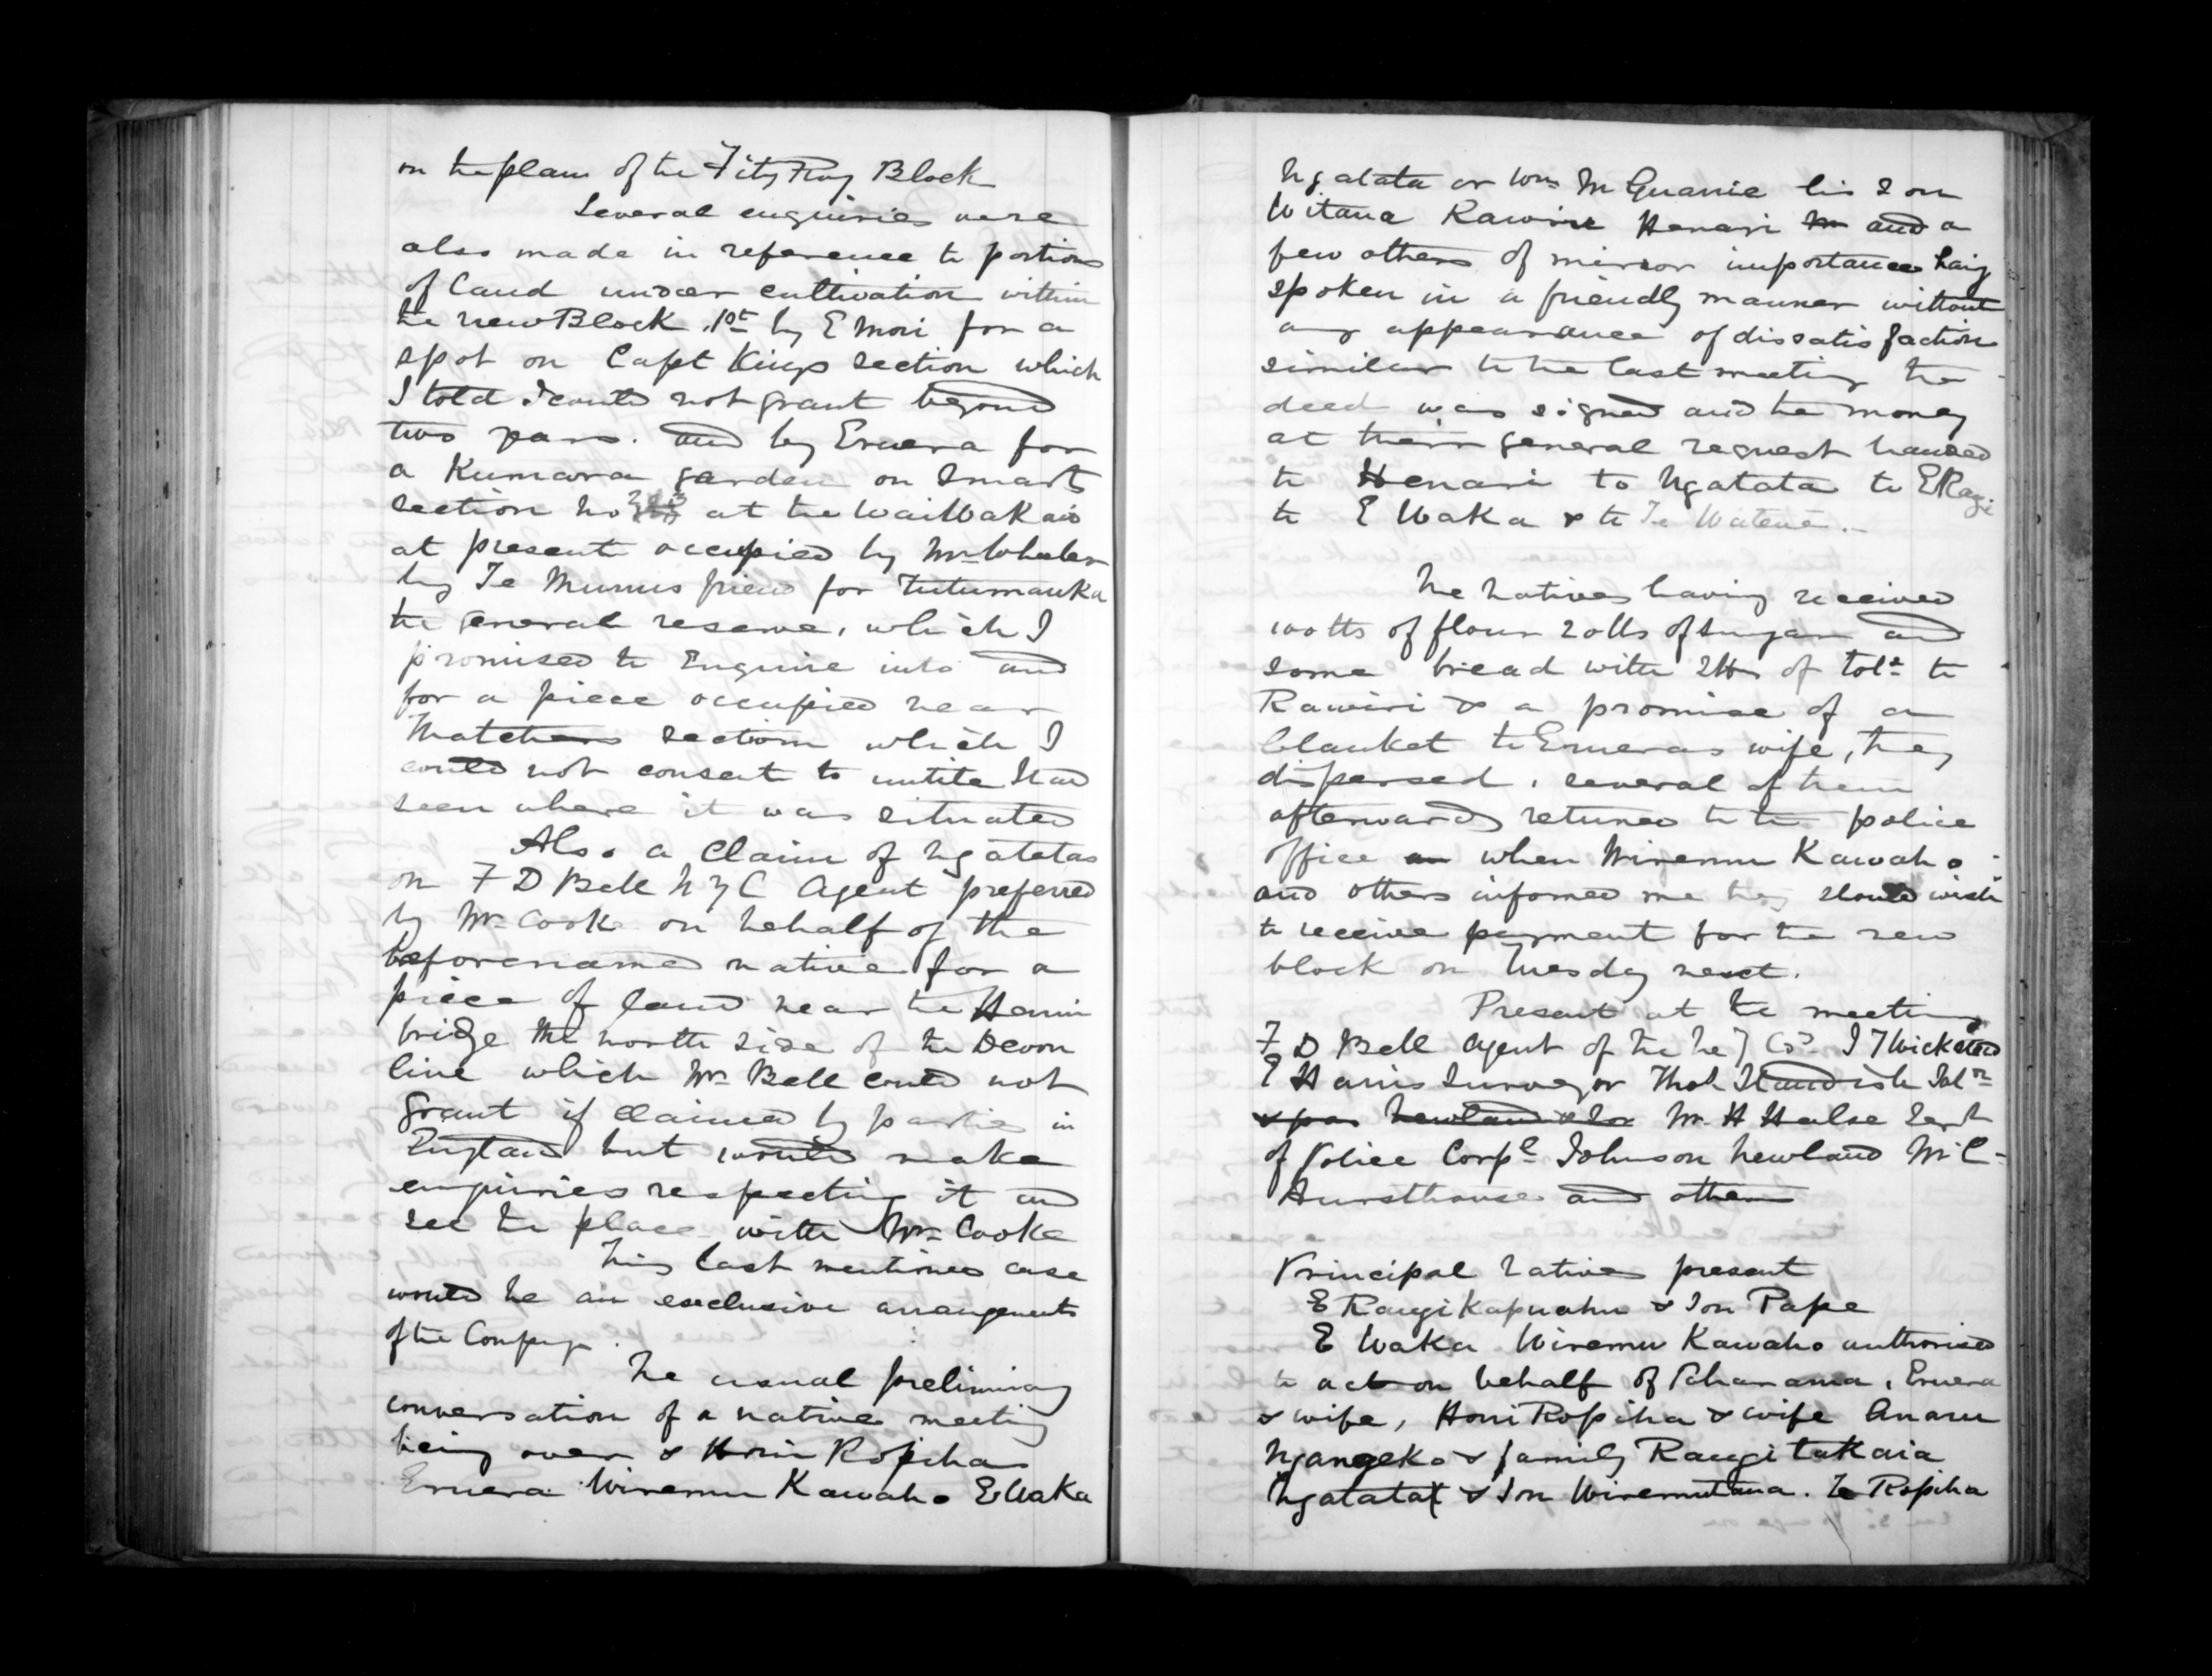 on the plan of the Fitz Roy Block
Several enquiries were
also made in reference to portions
of land under cultivation within
the new Block, 1st by E Mori for a
spot on Capt Kings section which
I told I could not grant beyond
two years. and by Eruera for
a Kumara garden on Smarts
section no at the Waiwakaio
at present occupied by Mr Wheeler
by Te Munus friend for Tutumauka
the general reserve, which I
promised to Enquire into and
for a piece occupied near
Thatchers section which I
could not consent to untile I had
seen where it was situated
Also a Claim of Ngatatas
on F D Bell N Z C Agent preferred
by Mr Cooke on behalf of the
beforenamed native for a
piece of land near the Henui
bridge the north side of the Devon
line which Mr Bell could not
grant if claimed by parties in
England but would make
enquiries respecting it and
see the place with Mr Cooke
This last mentioned case
would be an exclusive arrangements
of the Compy.
The usual preliminary
conversation of a native meeting
being over & Honi Ropiha
Eruera Wiremu Kawaho E Waka
Ngatata or Wm McGuanie his son
Witana Rawiri Henari and a
few others of minor importance havg
spoken in a friendly manner without
any appearance of dissatisfaction
similar to the last meeting the
deed was signed and the money
at their general request handed
to Henari to Ngatata to E Ragi
to E Waka & to Te Watene.
The natives having received
100 lbs of flour 20 lbs of Sugar and
some bread with 2 lbs of tobo to
Rawiri & a promise of a
blanket to Erueras wife, they
dispersed, several of them
afterwards returned to the police
office when Wiremu Kawaho
and others informed me they should wish
to receive payment for the new
block on Tuesday next.
Present at the meeting
F D Bell Agent of the N Z Co. J T Wicksteed
E Harris Surveyor Thos Standish Solr
Mr. H Halse Sert
of Police Corpl Johnson Newland Mr C
Hursthouse and others
Principal natives present
E Raugi Kapuahu & Son Pape
E Waka Wiremu Kawaho authorised
to act on behalf of Poharama, Eruera
& wife, Honi Ropiha & wife Anaru
Ngangeko & family Raugi takaia
Ngatata & Son Wiremutana. Te Ropiha